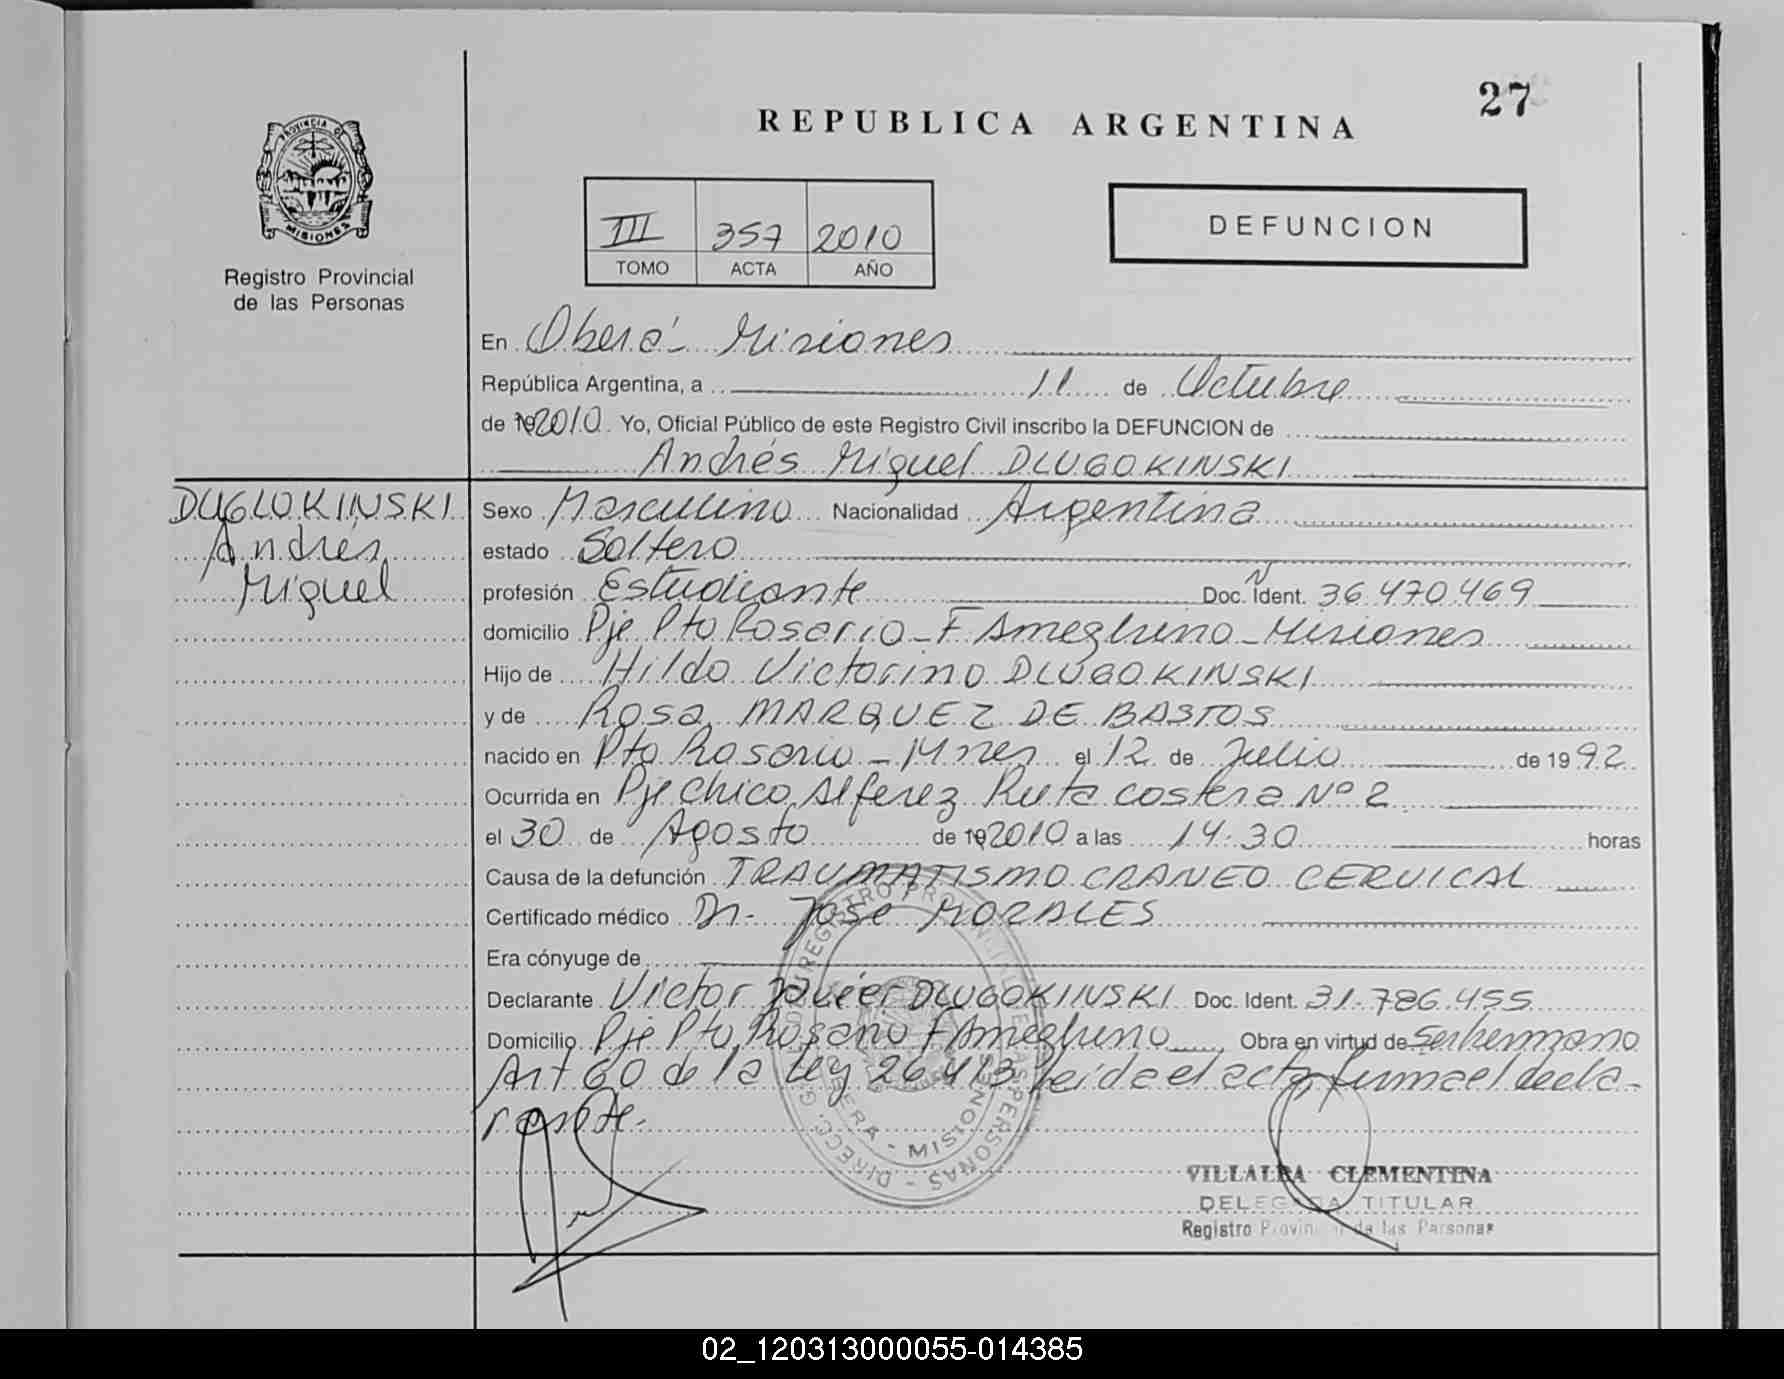 27
REPUBLICA ARGENTINA
PROVINCIA DE
MISIONES
Registro Provincial
de las Personas
III 357 2010
TOMO ACTA AÑO
DEFUNCION
En Oberá - Misiones
República Argentina, a 11 de Octubre
de 19 2010. Yo, Oficial Público de este Registro Civil inscribo la DEFUNCION de
Andrés Miguel DLUGOKINSKI
DUGLOKINSKI
Andrés
Miguel
Sexo Masculino Nacionalidad Argentina
estado Soltero
profesión Estudiante Doc. N Ident. 36.470.469
domicilio Pje Pto Rosario - F Ameghino - Misiones
Hijo de Hildo Victorino DLUGOKINSKI
y de Rosa MARQUEZ DE BASTOS
nacido en Pto Rosario - Mnes el 12 de Julio de 1992
Ocurrida en Pje Chico Alferez Ruta costera Nº 2
el 30 de Agosto de 19 2010 a las 14:30 horas
Causa de la defunción TRAUMATISMO CRANEO CERVICAL
Certificado médico Dr. José MORALES
Era cónyuge de
Declarante Victor Javier DLUGOKINSKI Doc. Ident. 31.786.455
Domicilio Pje Pto Rosario F Ameghino Obra en virtud de Ser hermano
Art 60 de la Ley 26.413 leida el acta firma el decla-
rante.
VILLALBA CLEMENTINA
DELEGADA TITULAR
Registro Provincial de las Personas
02_120313000055-014385